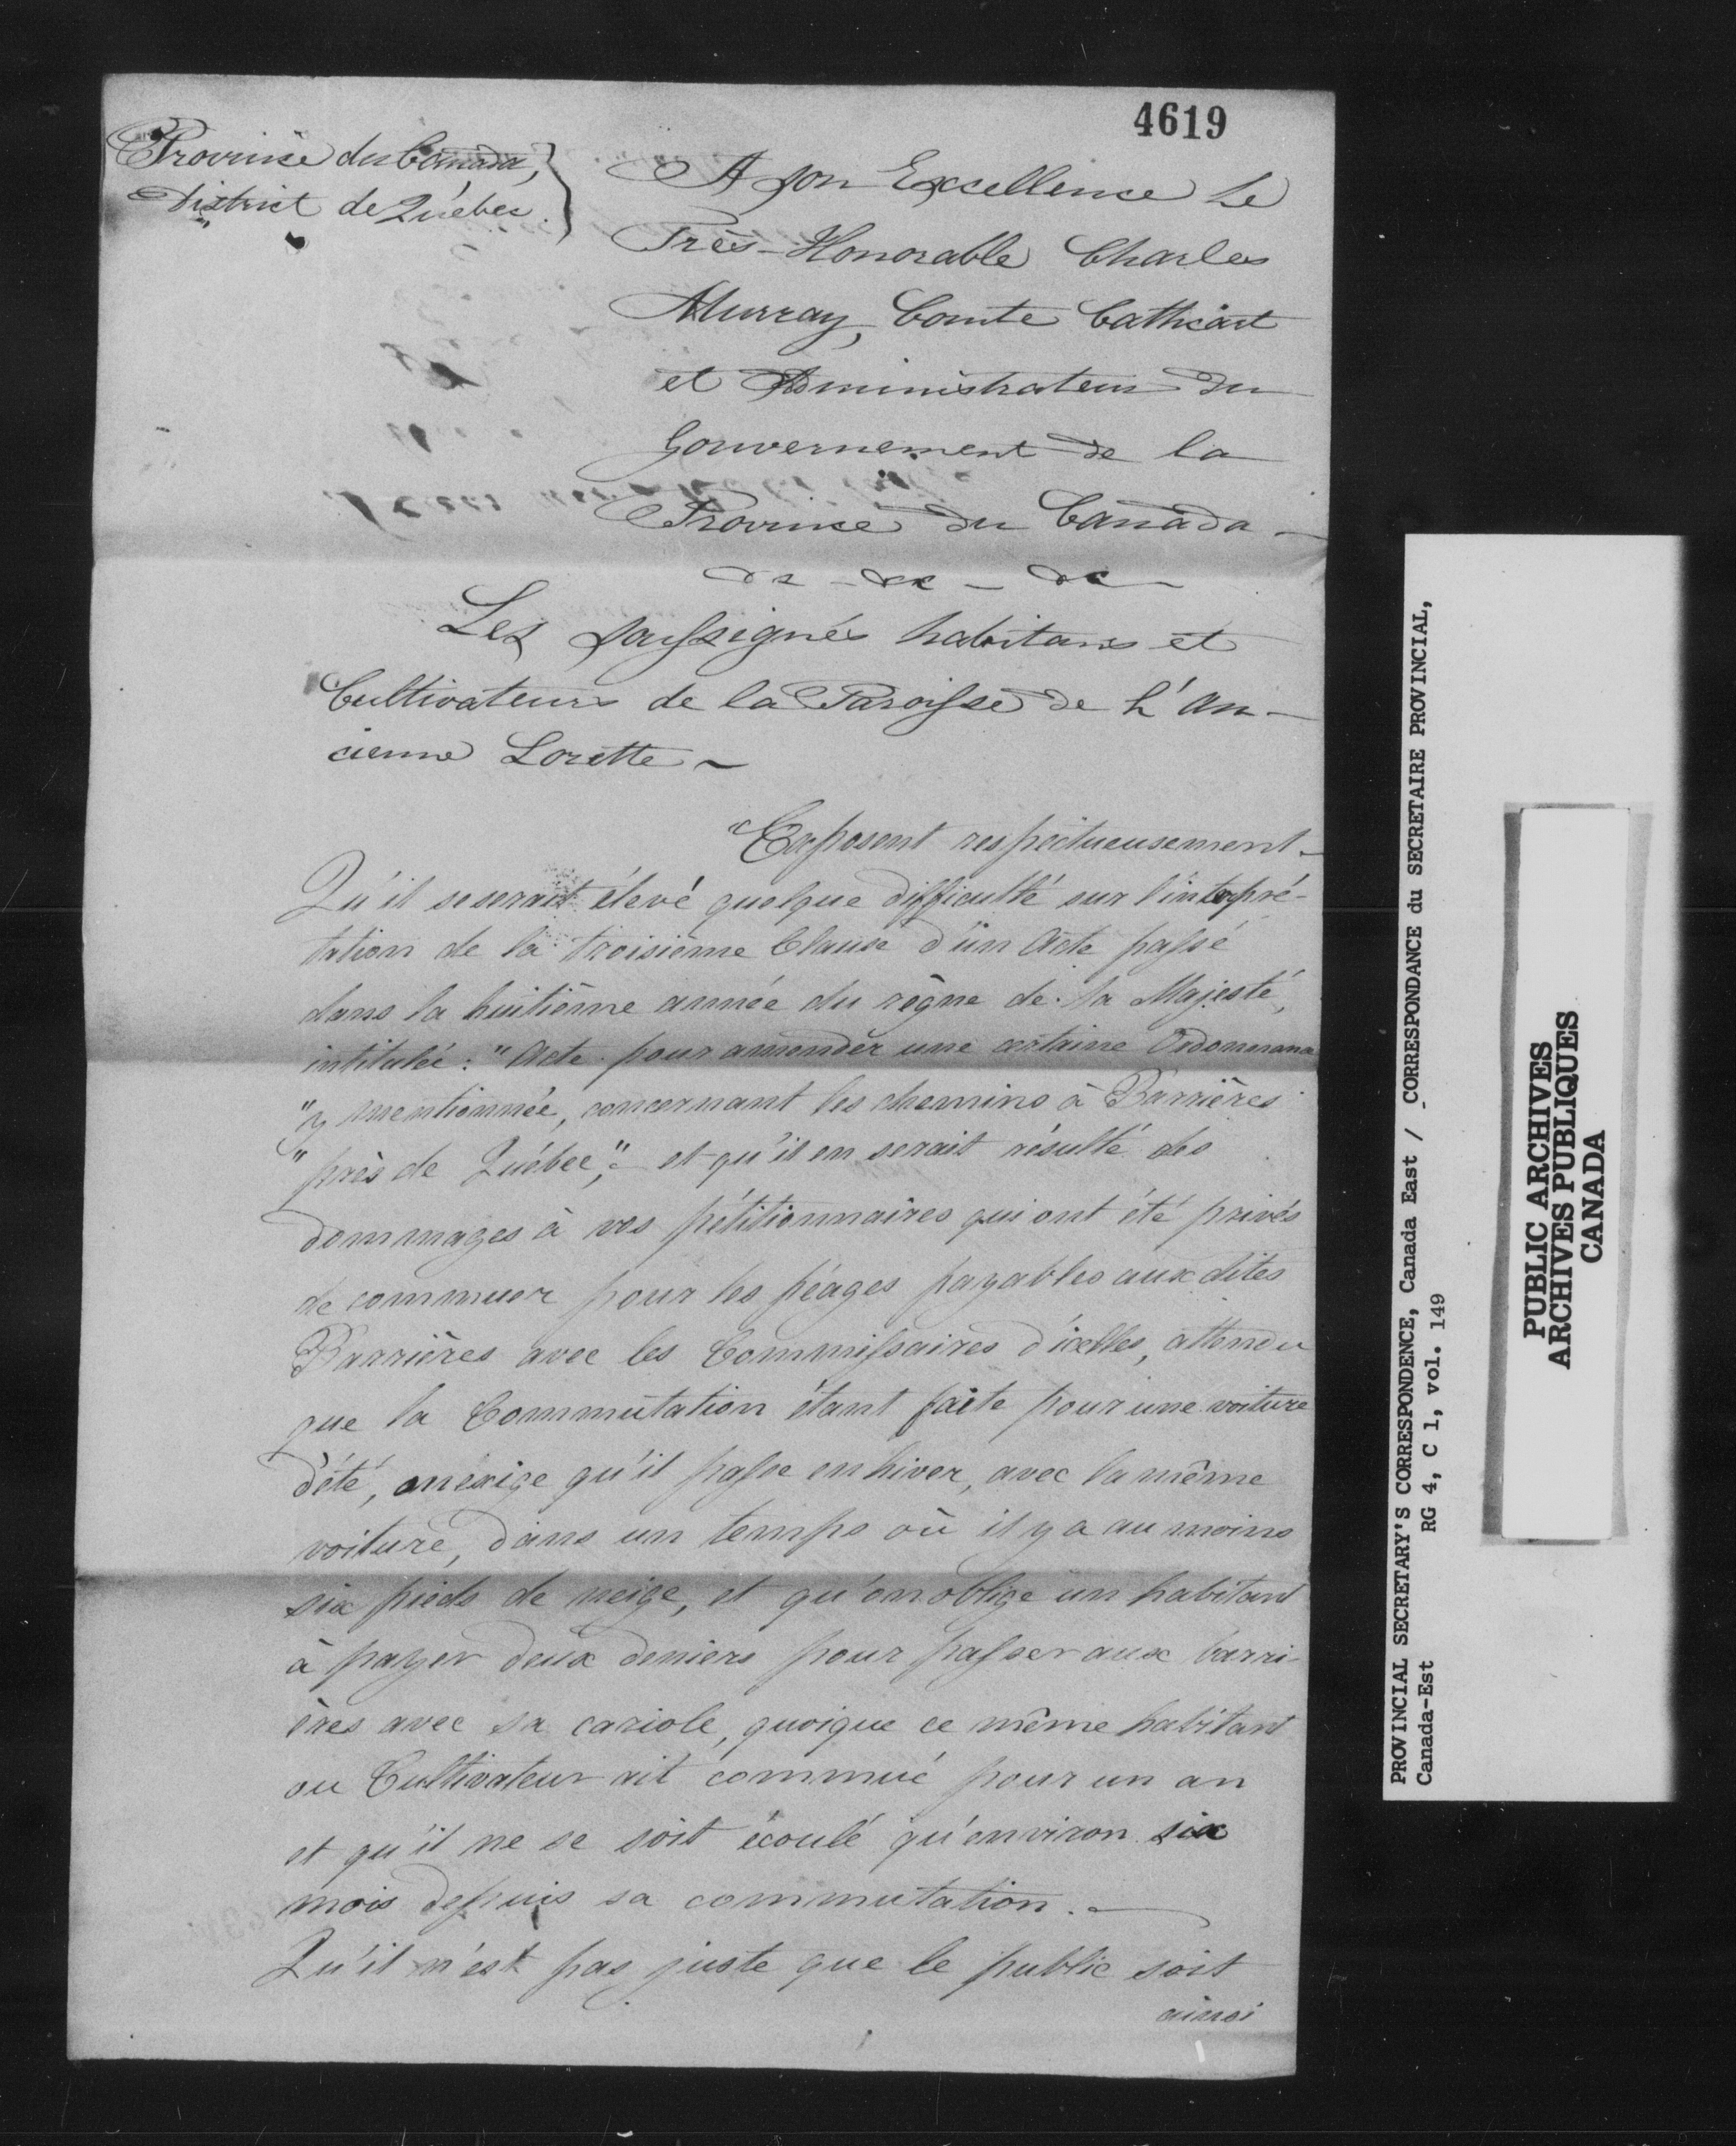 4619
Province du Canada,
District de Québec.
A Son Excellence Le
Très-Honorable Charles
Murray, Comte Cathcart
et Administrateur du
Gouvernement de la
Province du Canada -
&c - &c - &c -
Les soussignés habitans et
Cultivateurs de la Paroisse de L'An-
cienne Lorette -
Exposent respectueusement -
Qu'il se serait élevé quelque difficulté sur l'interpré-
tation de la troisième Clause d'un Acte passé
dans la huitième année du règne de Sa Majesté,
intitulée: "Acte pour amender une certaine Ordonnance
"y mentionnée, concernant les chemins à Barrières
"près de Québec," et qu'il en serait résulté des
dommages à vos pétitionnaires qui ont été privés
de commuer pour les péages payables aux dites
Barrières avec les Commissaires d'icelles, attendu
que la Commutation étant faite pour une voiture
d'été, on exige qu'il passe en hiver, avec la même
voiture, dans un temps où il y a au moins
six pieds de neige, et qu'on oblige un habitant
à payer deux deniers pour passer aux barri-
ères avec sa cariole, quoique ce même habitant
ou Cultivateur ait commué pour un an
et qu'il ne se soit écoulé qu'environ six
mois depuis sa commutation. -
Qu'il n'est pas juste que le public soit
ainsi
PROVINCIAL SECRETARY'S CORRESPONDENCE, Canada East / CORRESPONDANCE du SECRETAIRE PROVINCIAL,
Canada-Est RG 4, C 1, vol. 149
PUBLIC ARCHIVES
ARCHIVES PUBLIQUES
CANADA